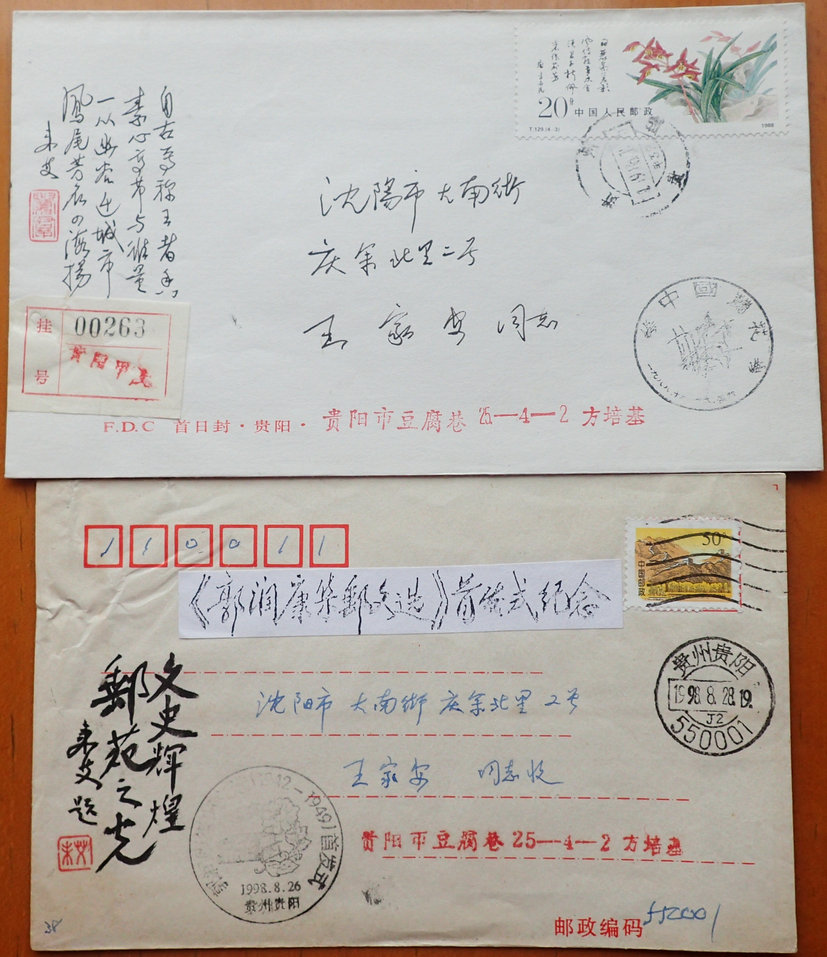 20分
中国人民邮政
T.129.(4-3)
1988
自古尊称王者香
素心高节与谁量
一从幽谷迁城市
凤尾芳名四海扬
来艾
沈陽市大南街
庆余北里二号
王家安同志
挂号
00263
贵阳
中國蘭花
F.D.C 首日封·贵阳·贵阳市豆腐巷25—4—2 方培基
110011
50
中国邮政
《郭润康集邮文选》首发式纪念
贵州贵阳
1998.8.28.19
J2
550001
文史辉煌
郵苑之光
来艾题
沈阳市大南街庆余北里2号
王家安 同志收
贵阳市豆腐巷25—4—2 方培基
-1949)首发式
1998.8.26
贵州贵阳
邮政编码550001
38